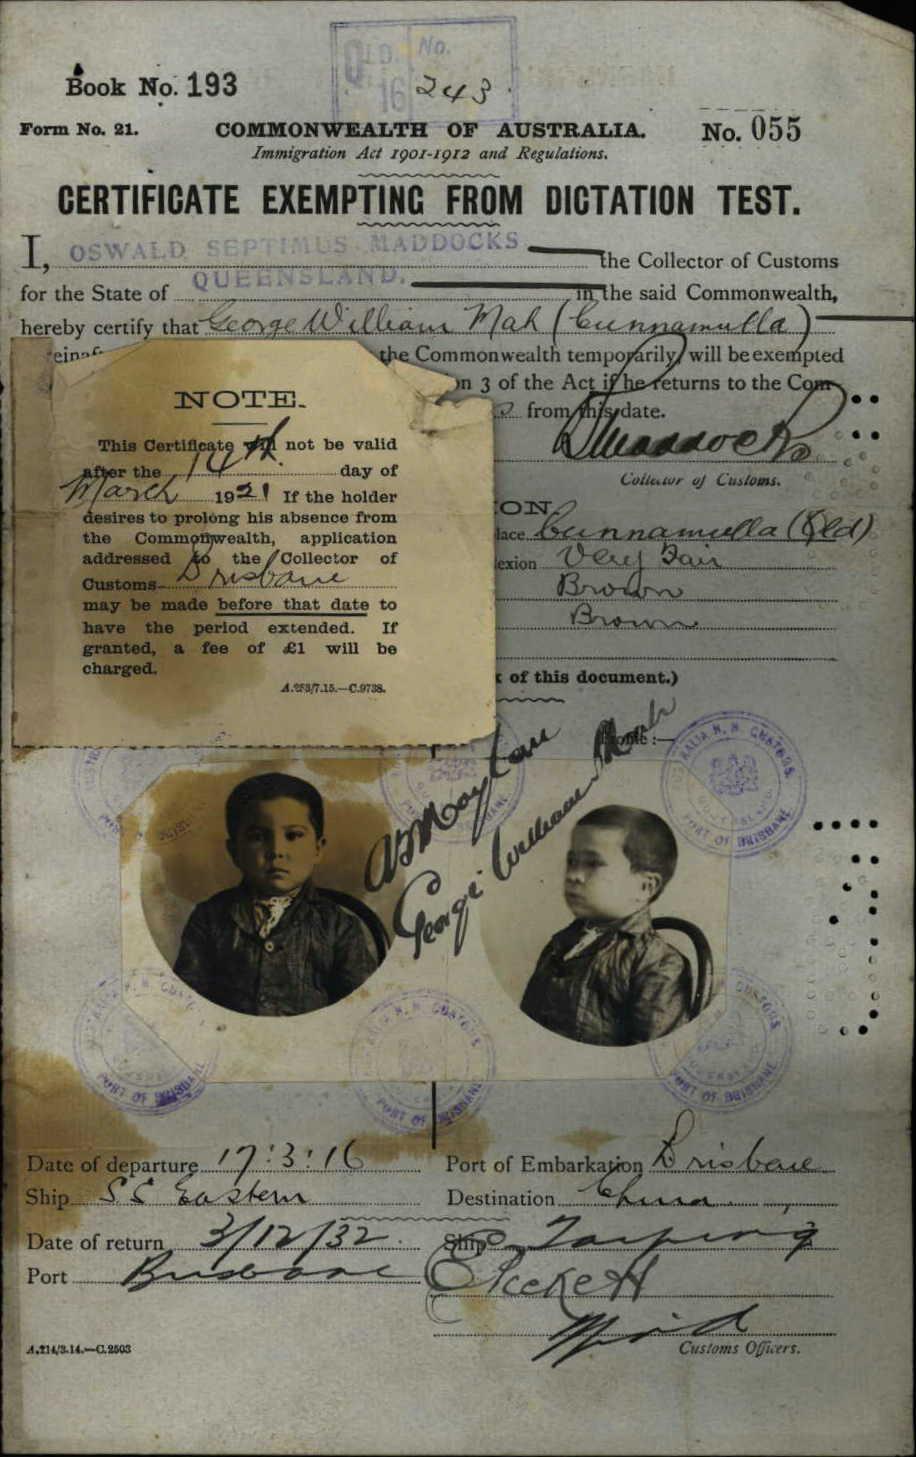 QLD. No.
16 243.
Book No. 193
Form No. 21. COMMONWEALTH OF AUSTRALIA. No. 055
Immigration Act 1901-1912 and Regulations.
CERTIFICATE EXEMPTING FROM DICTATION TEST.
I, OSWALD SEPTIMUS MADDOCKS the Collector of Customs
for the State of QUEENSLAND. in the said Commonwealth,
hereby certify that George William Mah (Cunnamulla)
einaf the Commonwealth temporarily, will be exempted
on 3 of the Act if he returns to the Com-
from this date.
O Maddocks
Collector of Customs.
NOTE.
This Certificate will not be valid
after the 14th day of
March 1921 If the holder
desires to prolong his absence from
the Commonwealth, application
addressed to the Collector of
Customs Brisbane
may be made before that date to
have the period extended. If
granted, a fee of £1 will be
charged.
A.253/7.15.—C.9738.
ION
lace Cunnamulla (Qld)
exion Very Fair
Brown
Brown
of this document.)
Profile:—
George William Mah
PORT OF BRISBANE
PORT OF BRISBANE
PORT OF BRISBANE
PORT OF BRISBANE
Date of departure 17:3:16 Port of Embarkation Brisbane
Ship SS Eastern Destination China
Date of return 3/12/32. Ship Taiping
Port Brisbane
Customs Officers.
A.214/3.14.—C.2503